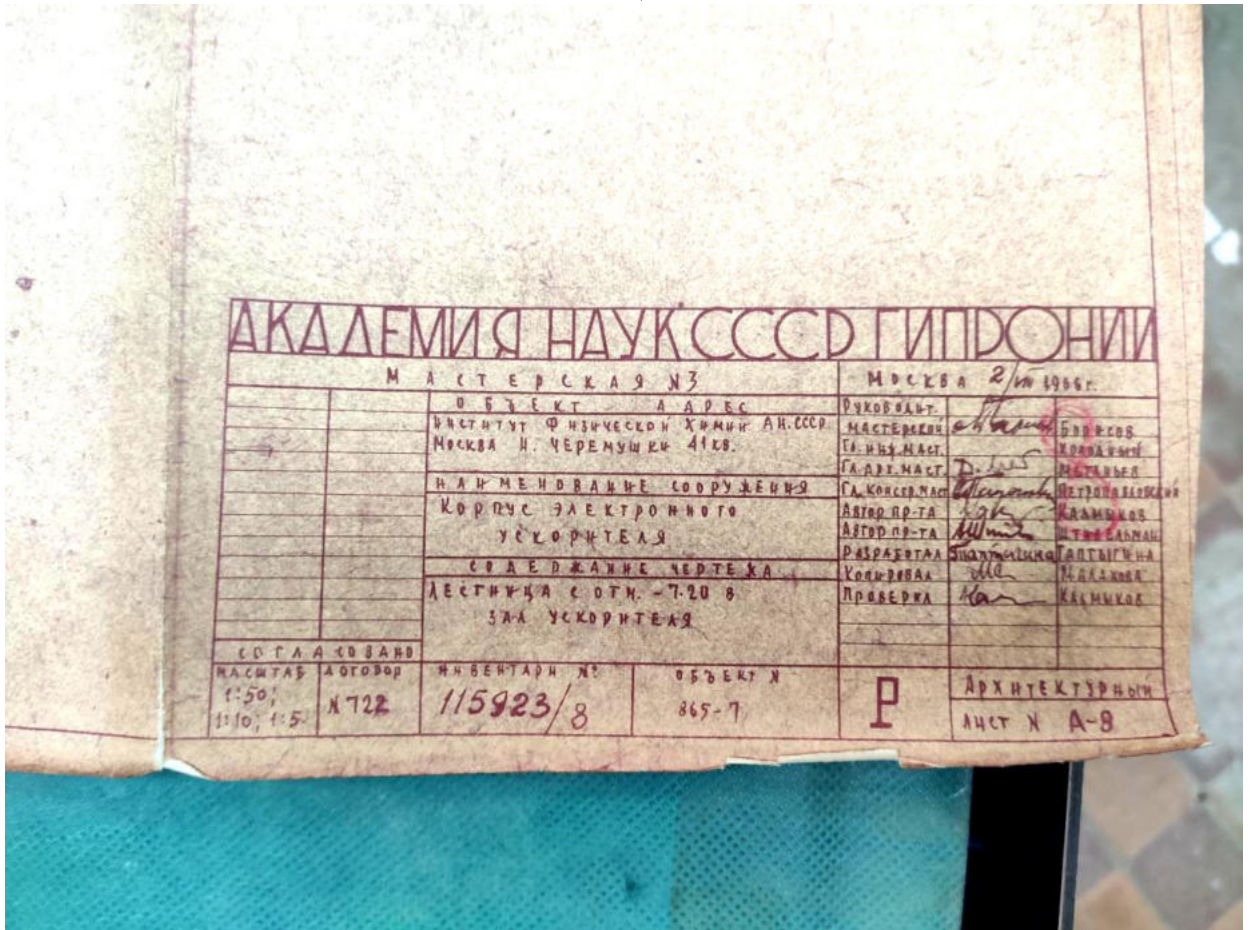 АКАДЕМИЯ НАУК СССР ГИПРОНИИ
МАСТЕРСКАЯ N3
МОСКВА 2/VIII 1966г.
ОБЪЕКТ АДРЕС
ИНСТИТУТ ФИЗИЧЕСКОЙ ХИМИИ АН.СССР
МОСКВА Н. ЧЕРЕМУШКИ 41 КВ.
НАИМЕНОВАНИЕ СООРУЖЕНИЯ
КОРПУС ЭЛЕКТРОННОГО
УСКОРИТЕЛЯ
СОДЕРЖАНИЕ ЧЕРТЕЖА
ЛЕСТНИЦА С ОТМ. -7.20 В
ЗАЛ УСКОРИТЕЛЯ
РУКОВОДИТ.
МАСТЕРСКОЙ БОРИСОВ
ГЛ. ИНЖ. МАСТ. ХОЛОДНЫЙ
ГЛ. АРХ. МАСТ.
ГЛ. КОНСТР. МАСТ ПЕТРОПАВЛОВСКИЙ
АВТОР ПР-ТА КАЛМЫКОВ
АВТОР ПР-ТА
РАЗРАБОТАЛ ТАПТЫГИНА
КОПИРОВАЛ МАЛАХОВА
ПРОВЕРИЛ КАЛМЫКОВ
СОГЛАСОВАНО
МАСШТАБ
1:50;
1:10; 1:5
ДОГОВОР
N 722
ИНВЕНТАРН №
115923/8
ОБЪЕКТ N
865-7
Р
АРХИТЕКТУРНЫЙ
ЛИСТ N А-8